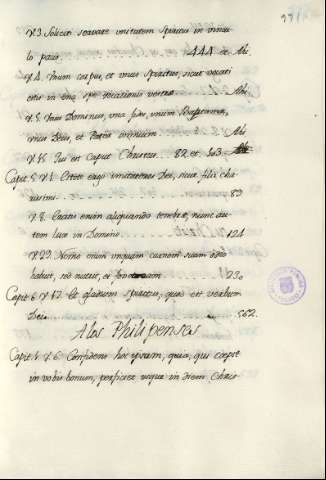 V. 3. Soliciti servare unitatem Spiritus in vincu
lo pacis. . . . . . . . . 444 de Ah.
V. 4. Unum corpus, et unus Spiritus, sicut vocati
estis in una spe vocationis vestre . . . Ah.
V. 5. Unus Dominus, una fides, unum Baptisma,
unus Deus, et Pater omnium . . . Ah.
V. 15. Qui est Caput Christus . . 82 et 303
Capit. 5. V. 1. Estote ergo imitatores Dei, sicut filii cha
risimi . . . . . . . . . 83
V. 8. Eratis enim aliquando tenebre, nunc au
tem lux in Domino . . . . . . 124
V. 29. Nemo enim unquam carnem suam odio
habuit, sed nutrit, et . . . 230
Capit. 6. V. 17. Et gladium Spiritus, quod est verbum
Dei . . . . . . . . . 562.
A los Philipenses
Capit. 1. V. 6. Confidens hoc ipsum, quia, qui coepit
in vobis bonum, perficiet usque in diem Chris